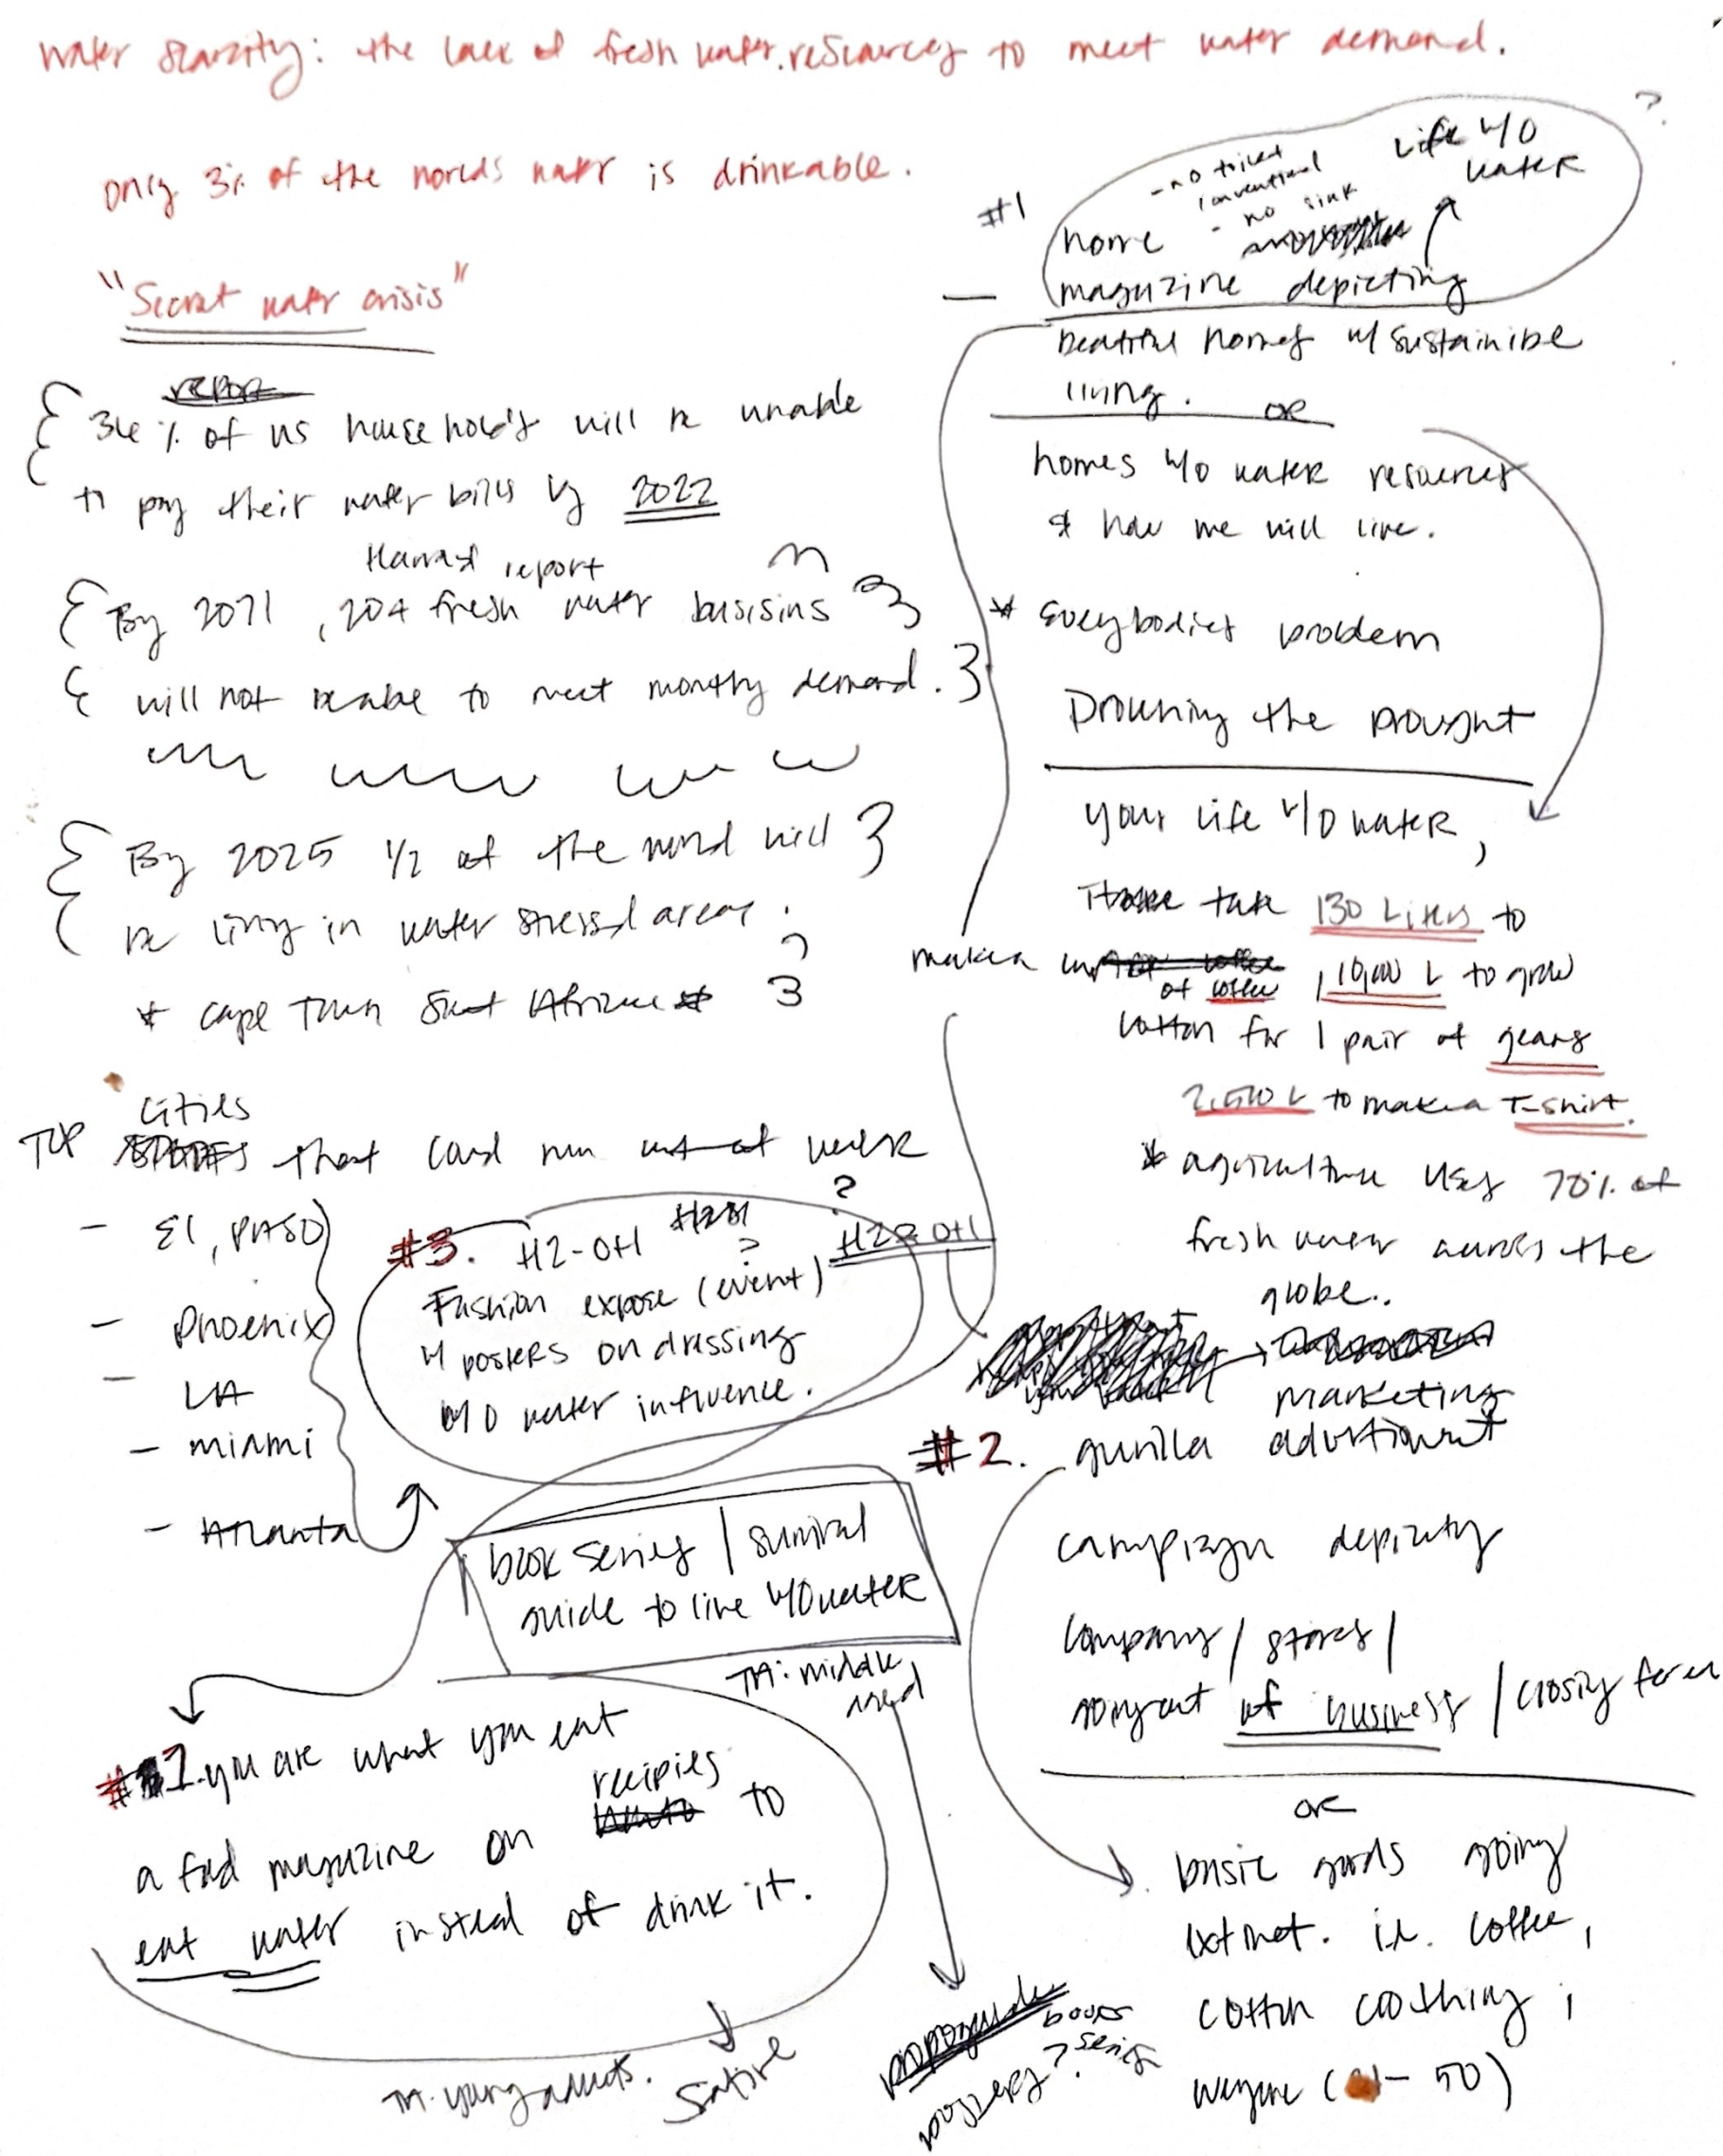 water scarcity: the lack of fresh water resources to meet water demand.
only 3% of the worlds water is drinkable.
"Secret water crisis"
report
36% of us households will be unable
to pay their water bills by 2022
Harvard report
By 2071, 204 fresh water basisins
will not beable to meet monthly demand.
By 2025 1/2 of the world will
be living in water stressed areas.
* cape Town
Cities
TOP that could run out of water
- El, PASO
- Phoenix
- LA
- miami
- Atlanta
#3. H2-OH H2OH ?
?
H2O OH
Fashion expose (event)
w posters on dressing
w/o water influence.
book series / survival
guide to live w/o water
TA: middle
aged
#1. you are what you eat
recipies
a food magazine on to
eat water instead of drink it.
TA: young adults.
Satire
propoganda
books
series
posters?
?
#1
- no toilet
conventional
- no sink
Life w/o
water
home
magazine depicting
beautiful homes w/ sustainible
living. OR
homes w/o water resources
& how we will live.
* Everybodies problem
Drowning the Drought
your life w/o water,
take 130 Liters to
make a
of coffee, 10,000 L to grow
cotton for 1 pair of jeans
2,500 L to make a T-shirt.
* agriculture uses 70% of
fresh water across the
globe..
marketing
#2. gurilla advertisment
campaign depicting
company / stores /
going out of business / closing forever
or
basic goods going
extinct. i.e. coffee,
cotton clothing,
- 50)